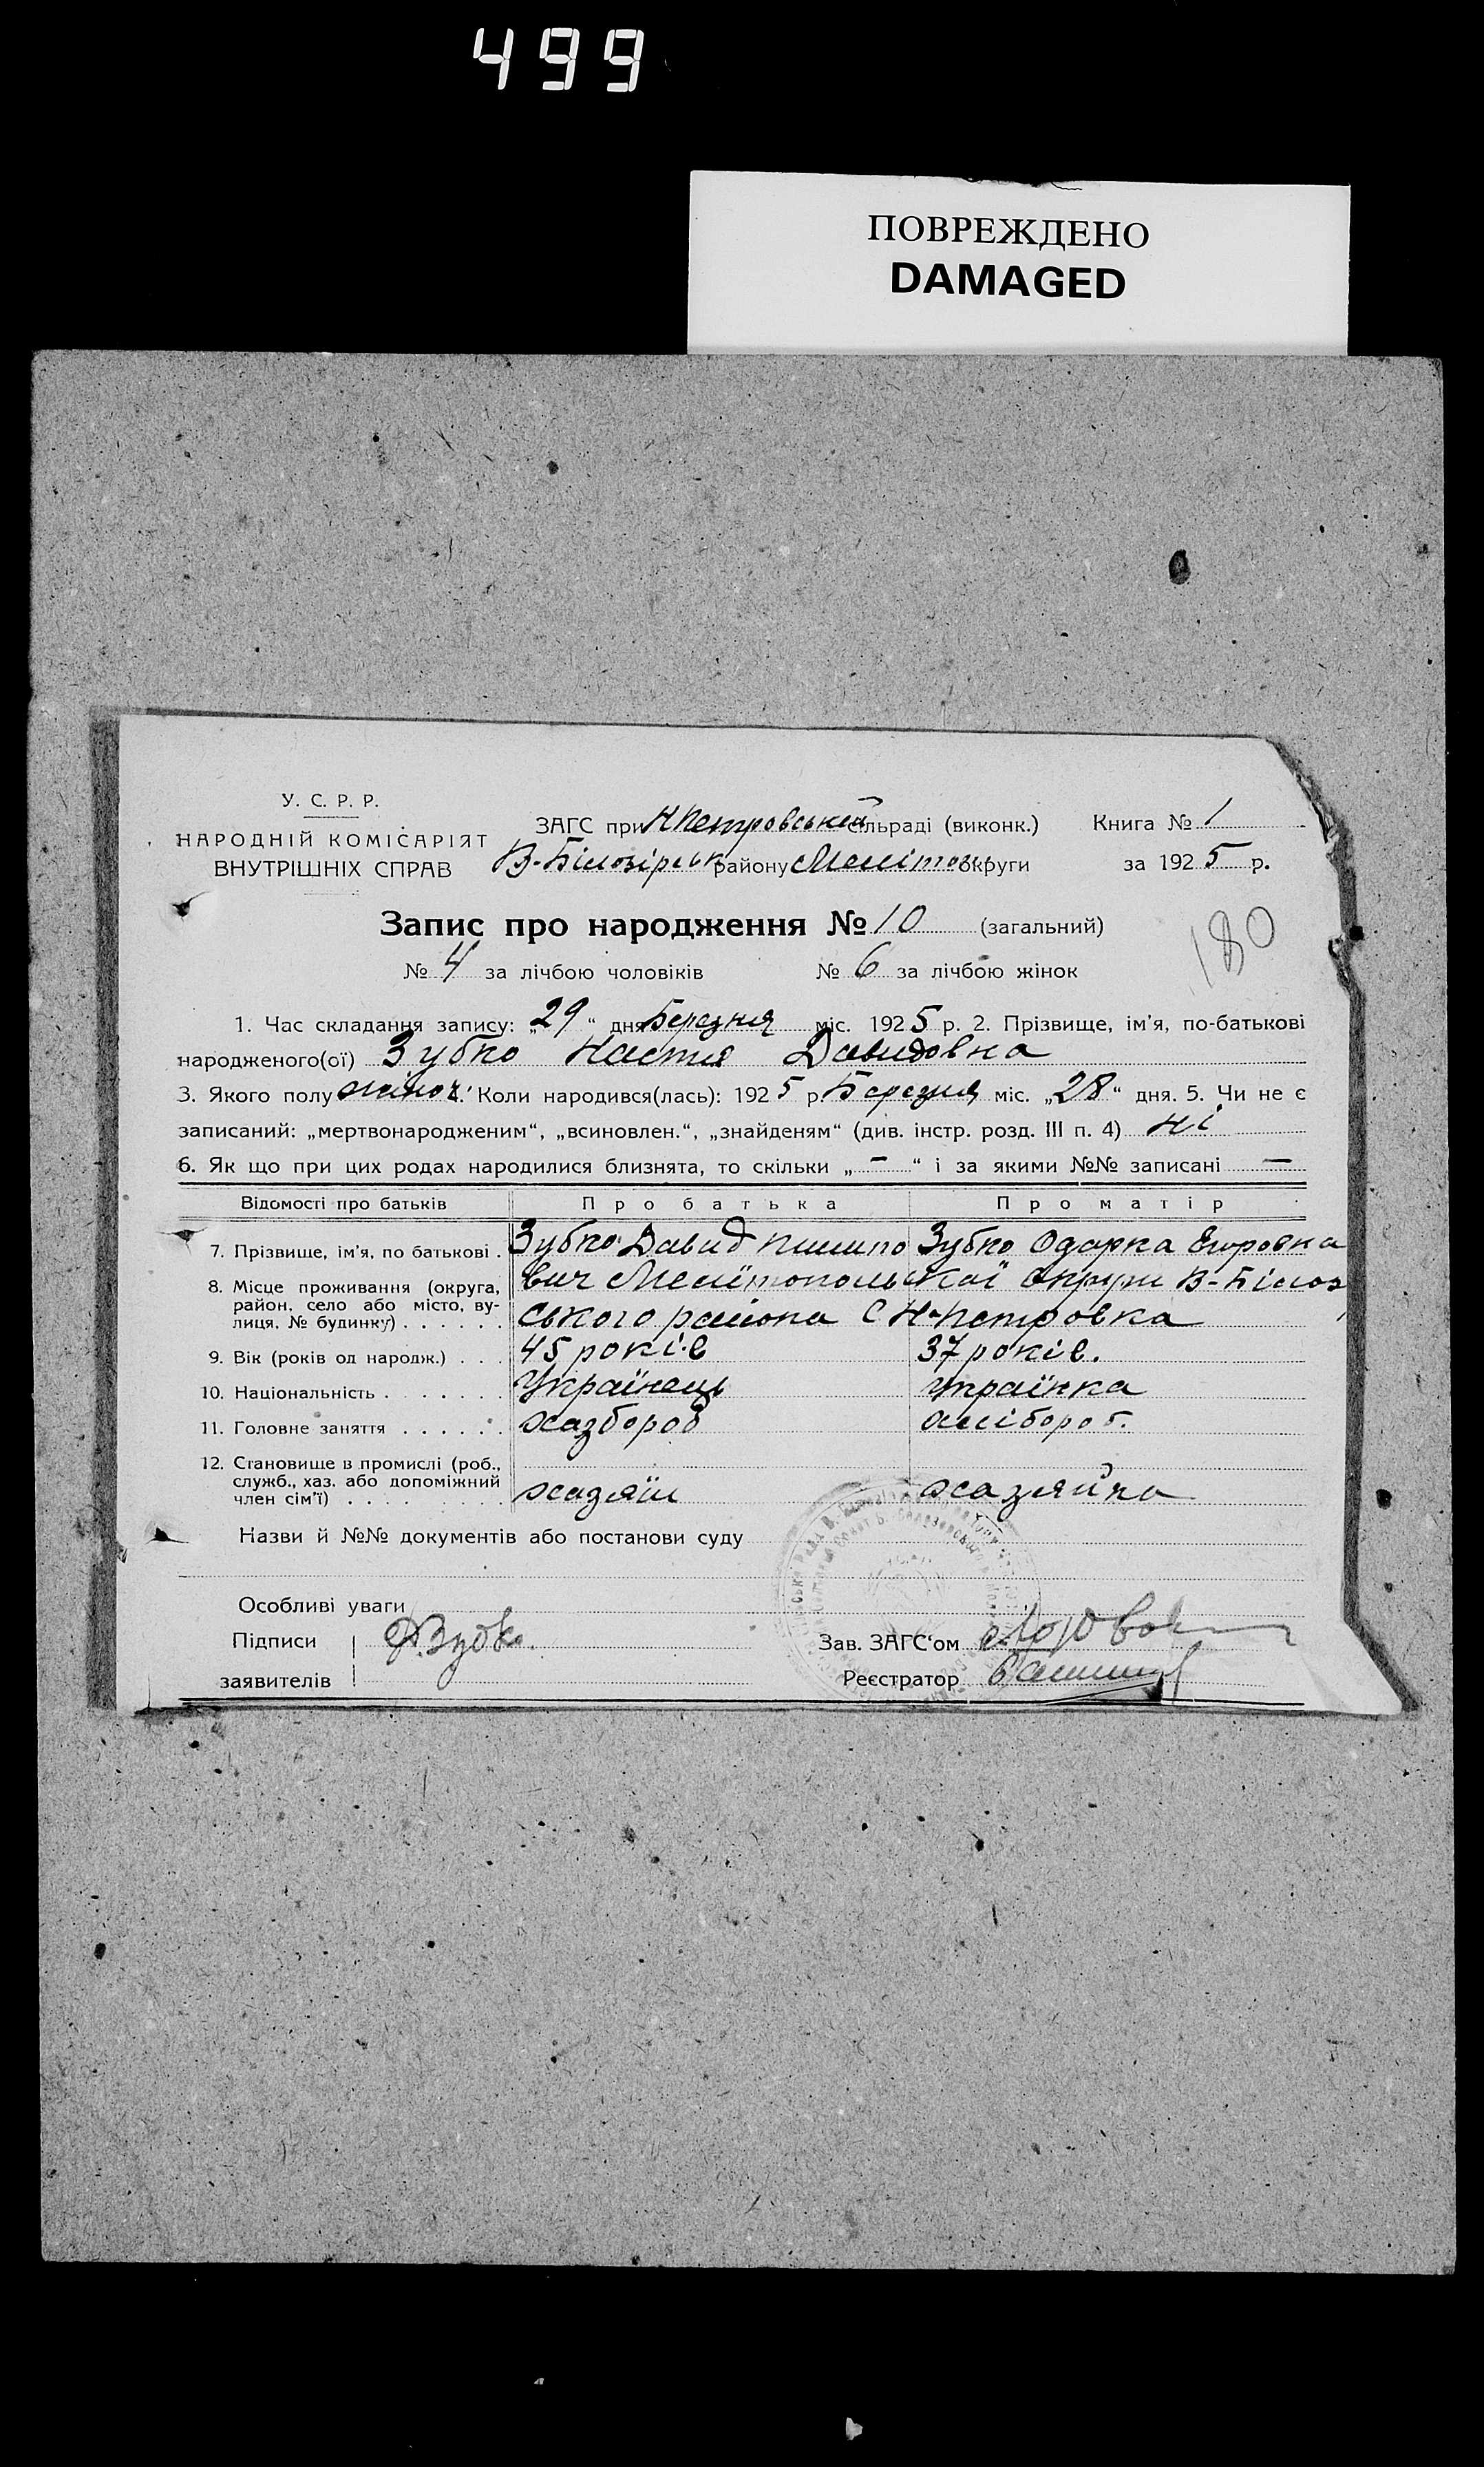 499
ПОВРЕЖДЕНО
DAMAGED
У. С. Р. Р.
НАРОДНІЙ КОМІСАРІЯТ
ВНУТРІШНІХ СПРАВ
ЗАГС при Н Петровській сільраді (виконк.) Книга № 1
В-Білозірськ району Меліто округи за 1925 р.
Запис про народження № 10 (загальний)
180
№ 4 за лічбою чоловіків № 6 за лічбою жінок
1. Час складання запису: „29“ дня Березня міс. 1925 р. 2. Прізвище, ім’я, по-батькові
народженого(ої) Зубко Настя Давидовна
3. Якого полу жіноч. Коли народився(лась): 1925 р Березня міс. „28“ дня. 5. Чи не є
записаний: „мертвонародженим“, „всиновлен.“, „знайденям“ (див. інстр. розд. III п. 4) ні
6. Як що при цих родах народилися близнята, то скільки „ – “ і за якими №№ записані —
Відомості про батьків Про батька Про матір
7. Прізвище, ім’я, по батькові . Зубко Давид Пилипо Зубко Одарка Егоровна
8. Місце проживання (округа, вич Мелітопольской округи В-Білоз
район, село або місто, ву- ського района С Н-Петровка
лиця, № будинку) . . . . . .
9. Вік (років од народж.) . . . 45 років 37 років.
10. Національність . . . . . . . Українець Українка
11. Головне заняття . . . . . . хазбороб хлібороб.
12. Становище в промислі (роб.,
служб., хаз. або допоміжний
член сім’ї) . . . . . . . . . хазяїн хазяйка
Назви й №№ документів або постанови суду
Особливі уваги
Підписи Д Зубко. Зав. ЗАГС‘ом
заявителів Реєстратор